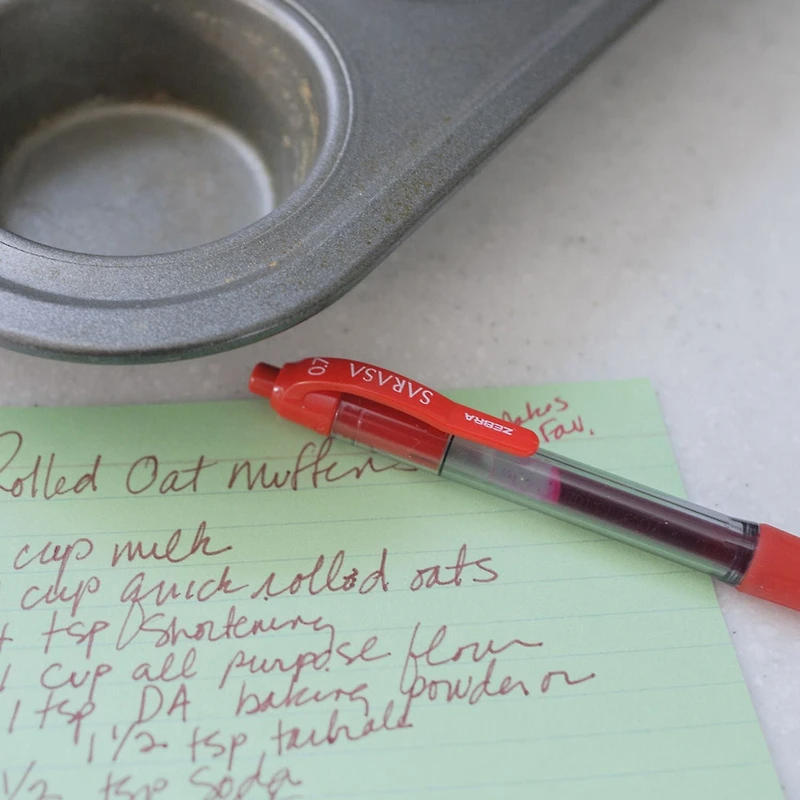 0.7 SARASA ZEBRA
Fav.
Rolled Oat Muffins
cup milk
cup quick rolled oats
tsp shortening
1 cup all purpose flour
1 tsp DA baking powder or
1 1/2 tsp
1/2 tsp soda